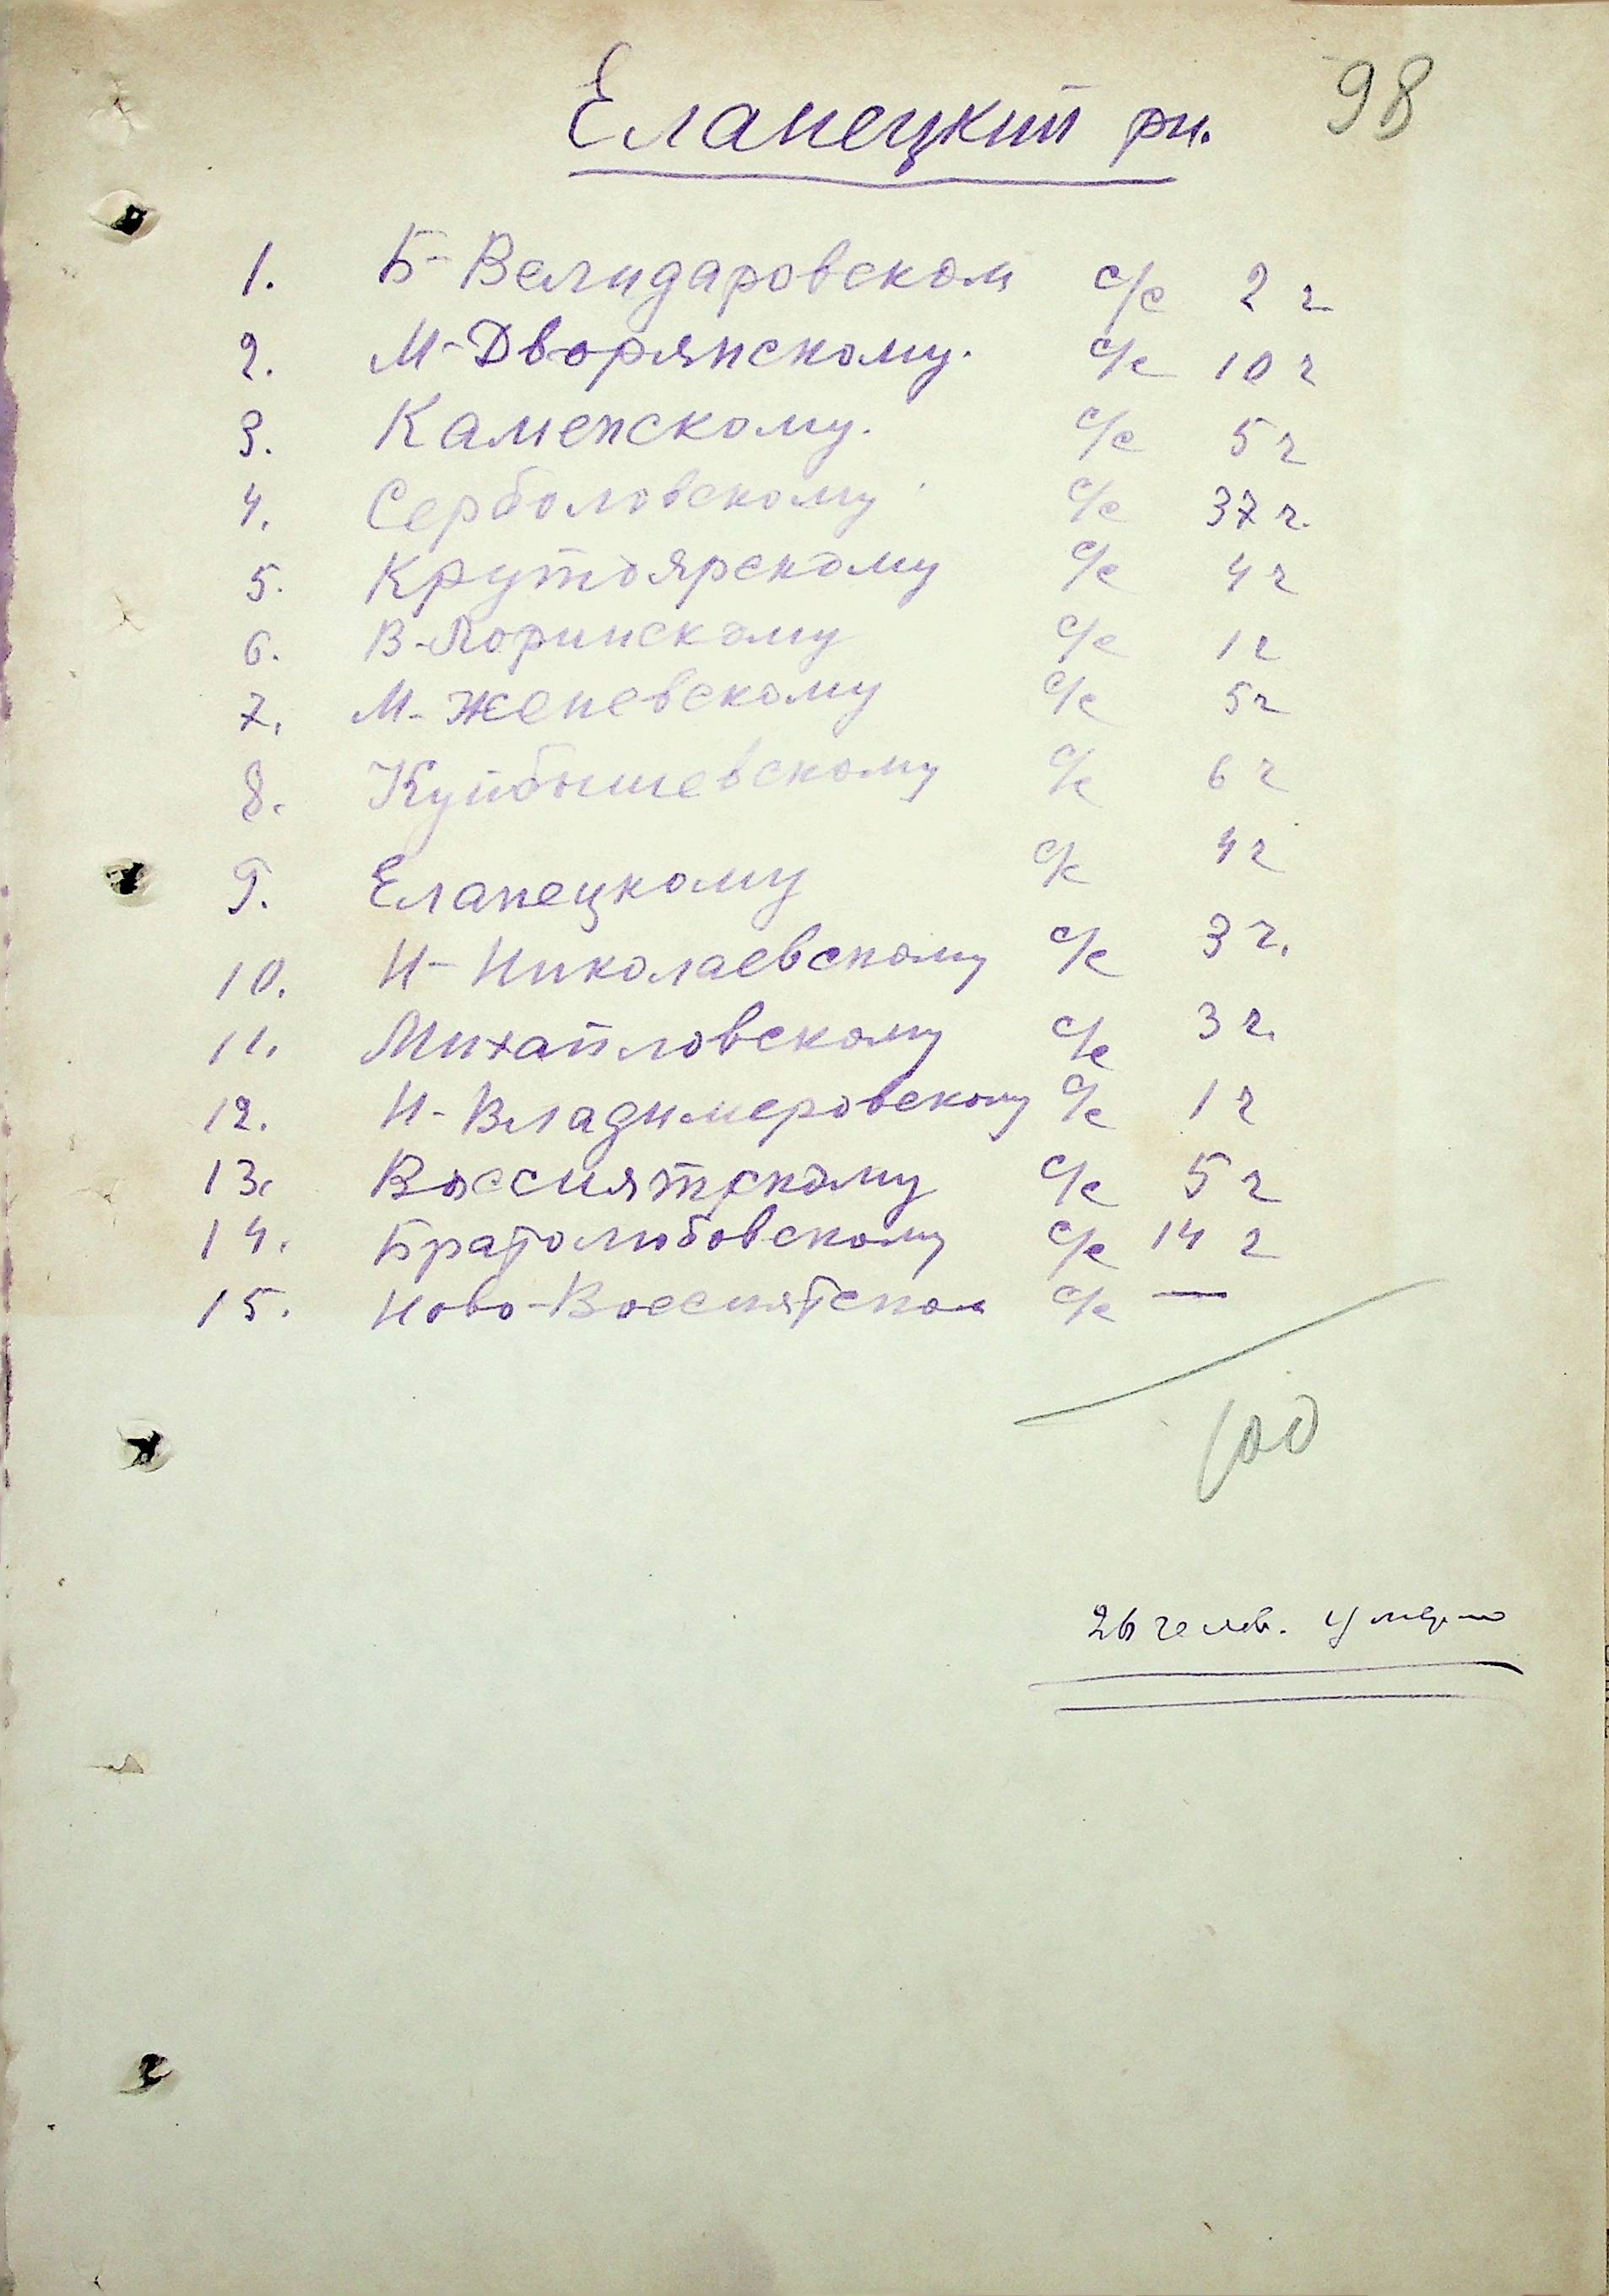 Еланецкий рн. 98
1. Б-Велидаровском с/с 2 ч
2. М-Дворянскому. с/с 10 ч
3. Каменскому. с/с 5 ч
4. Серболовскому с/с 37 ч.
5. Крутоярскому с/с 4 ч
6. В-Горинскому с/с 1 ч
7. М-Женевскому с/с 5 ч
8. Куйбышевскому с/с 6 ч
9. Еланецкому с/с 4 ч
10. Н-Николаевскому с/с 3 ч.
11. Михайловскому с/с 3 ч.
12. Н-Владимеровскому с/с 1 ч
13. Воссиятскому с/с 5 ч
14. Братолюбовскому с/с 14 ч
15. Ново-Воссиятском с/с —
100
26 челов. умерло